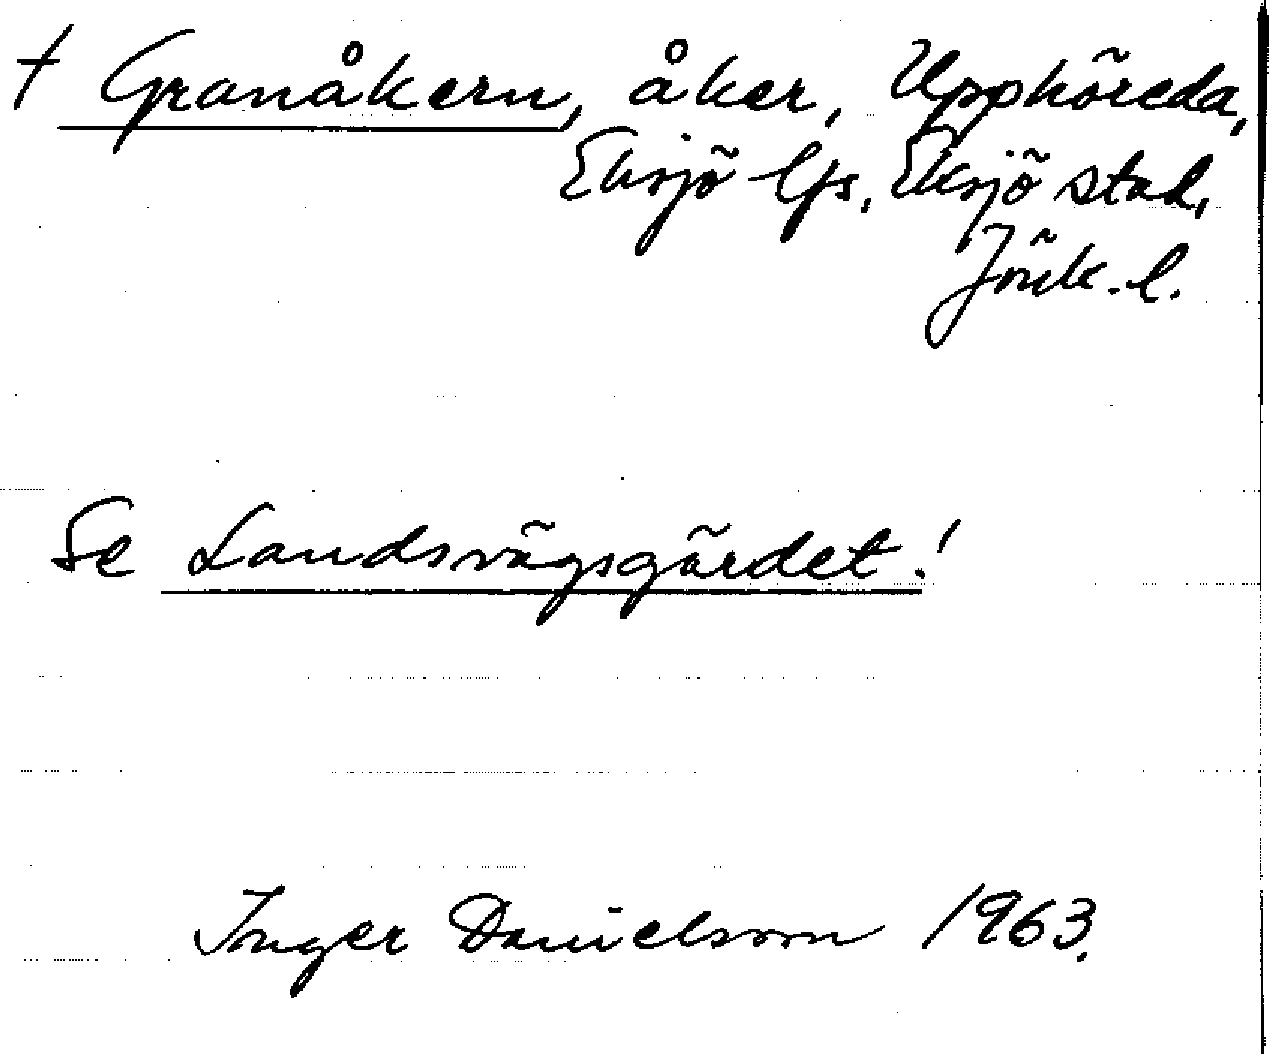 † Granåkern, åker, Upphöreda,
Eksjö lfs, Eksjö stad,
Jönk. l.
Se Landsvägsgärdet!
Inger Danielsson 1963.